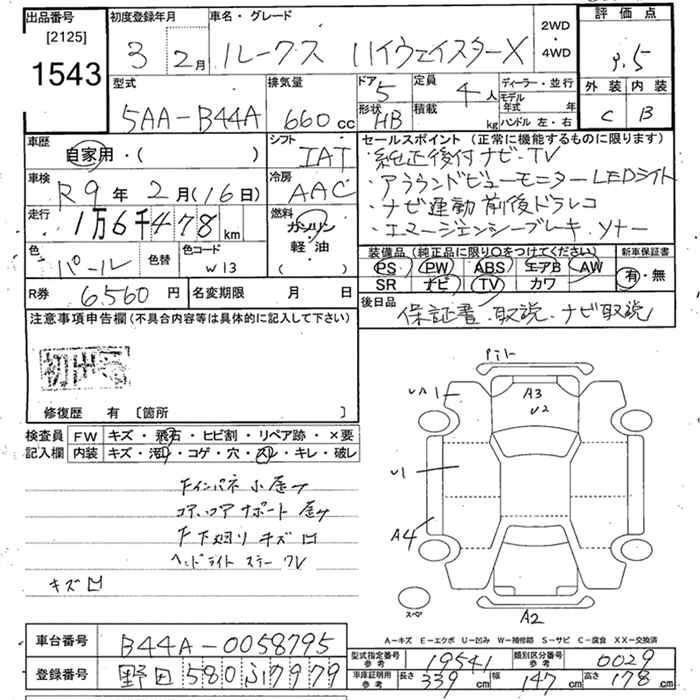 出品番号
[2125]
1543
初度登録年月
3 2月
車名・グレード
ルークス ハイウェイスターX
2WD
・
4WD
評価点
外装 内装
C B
型式
5AA-B44A
排気量
660 cc
ドア
5
形状
HB
定員
4 人
積載
kg
ディーラー・並行
モデル年式 年
ハンドル 左・右
車歴
自家用・( )
シフト
IAT
車検
R9年 2月(16日)
冷房
AAC
走行
1万6千478 km
燃料
ガソリン
軽・油
( )
色
パール
色替
色コード
W13
R券
6,560 円
名変期限 月 日
セールスポイント(正常に機能するものに限ります)
・純正後付ナビ・TV
・アラウンドビューモニター LEDライト
・ナビ連動前後ドラレコ
・エマージェンシーブレーキ.ソナー
装備品(純正品に限り○をつけてください)
PS PW ABS エアB AW
SR ナビ TV カワ
新車保証書
有・無
後日品
保証書.取説.ナビ取説
注意事項申告欄(不具合内容等は具体的に記入して下さい)
修復歴 有 [箇所 ]
検査員
記入欄
FW キズ・飛石・ヒビ割・リペア跡・×要
内装 キズ・汚・コゲ・穴・スレ・キレ・破レ
コアサポート
F下廻りキズ凹
ヘッドライト
キズ凹
A3
U2
U1
A4
A2
スペア
A-キズ E-エクボ U-凹み W-補修跡 S-サビ C-腐食 XX-交換済
車台番号
B44A-0058795
登録番号
野田580ふ7979
型式指定番号
参考
19541
類別区分番号
参考
0029
車庫証明用
参考
長さ 339 cm
幅 147 cm
高さ 178 cm